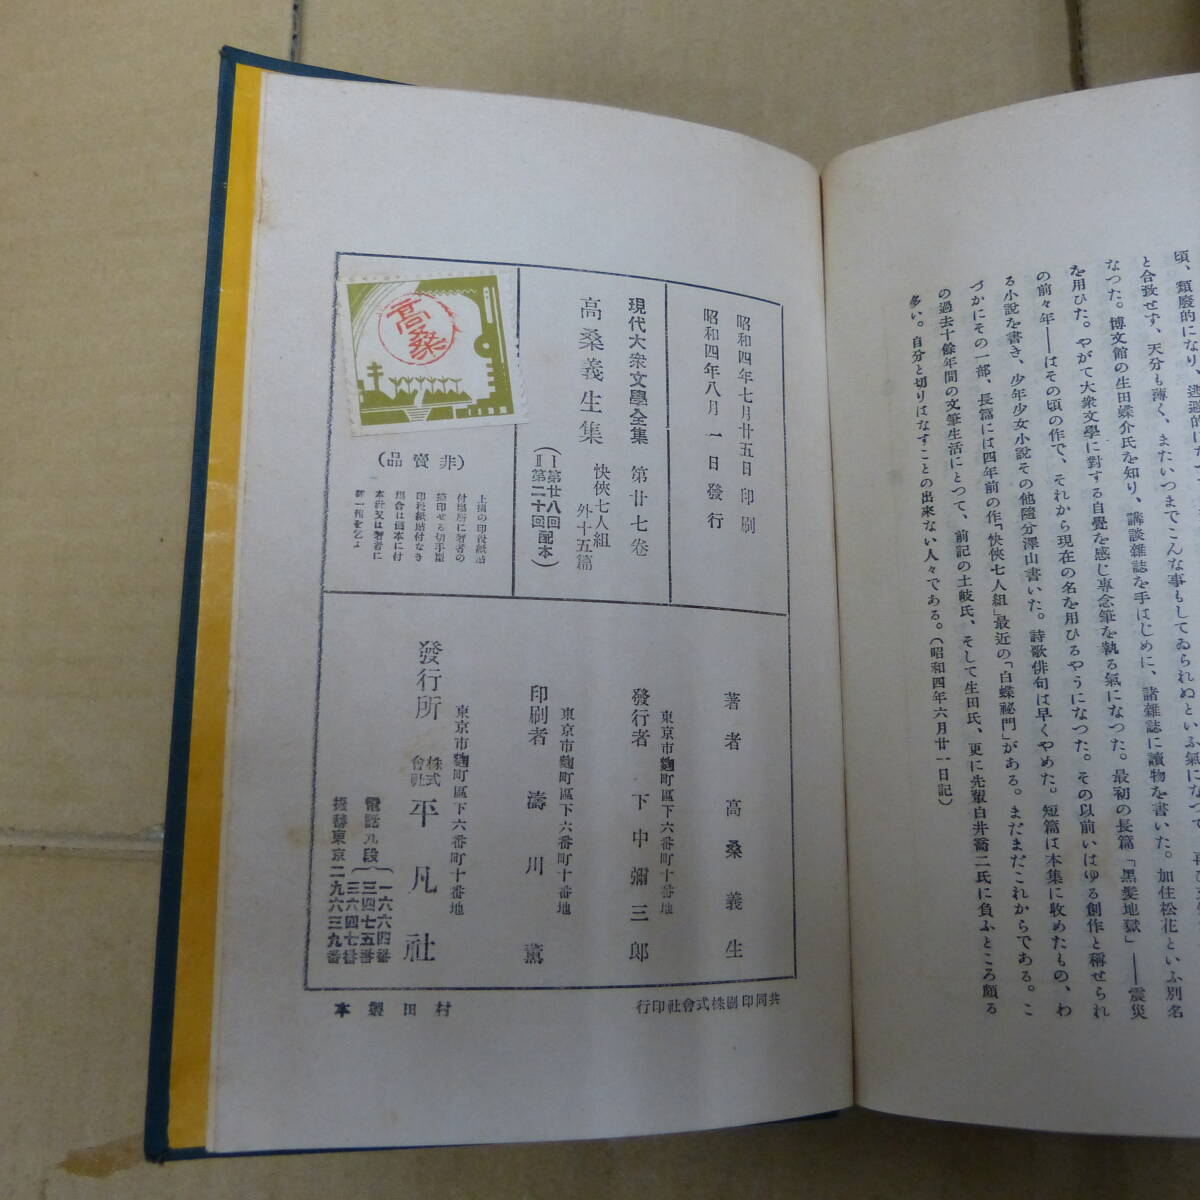 頃、類廢的になり、
と合致せず、天分も薄く、またいつまでこんな事もしてゐられぬといふ氣になつて、再び
なつた。博文館の生田蝶介氏を知り、講談雜誌を手はじめに、諸雜誌に讀物を書いた。加住松花といふ別名
を用ひた。やがて大衆文學に對する自覺を感じ專念筆を執る氣になつた。最初の長篇「黑髮地獄」――震災
の前々年――はその頃の作で、それから現在の名を用ひるやうになつた。その以前いはゆる創作と稱せられ
る小説を書き、少年少女小説その他隨分澤山書いた。詩歌俳句は早くやめた。短篇は本集に收めたもの、わ
づかにその一部、長篇には四年前の作「快俠七人組」最近の「白蝶祕門」がある。まだまだこれからである。こ
の過去十餘年間の文筆生活にとつて、前記の土岐氏、そして生田氏、更に先輩白井喬二氏に負ふところ頗る
多い。自分と切りはなすことの出來ない人々である。（昭和四年六月廿一日記）
昭和四年七月廿五日 印刷
昭和四年八月 一日 發行
現代大衆文學全集 第廿七卷
高桑義生集 快俠七人組
外十五篇
（Ⅰ第廿八回配本
Ⅱ第二十回配本）
高桑
（非賣品）
上掲の印稅紙貼
付場所に著者の
捺印せる切手型
印稅紙貼付なき
場合は價本に付
本社又は著者に
御一報を乞ふ
著者 高桑義生
東京市麴町區下六番町十番地
發行者 下中彌三郎
東京市麴町區下六番町十番地
印刷者 濤川薰
東京市麴町區下六番町十番地
發行所 株式會社 平凡社
電話九段 一六六四番
三四七五番
三六四七番
振替東京二九六三九番
共同印刷株式會社印行
村田製本